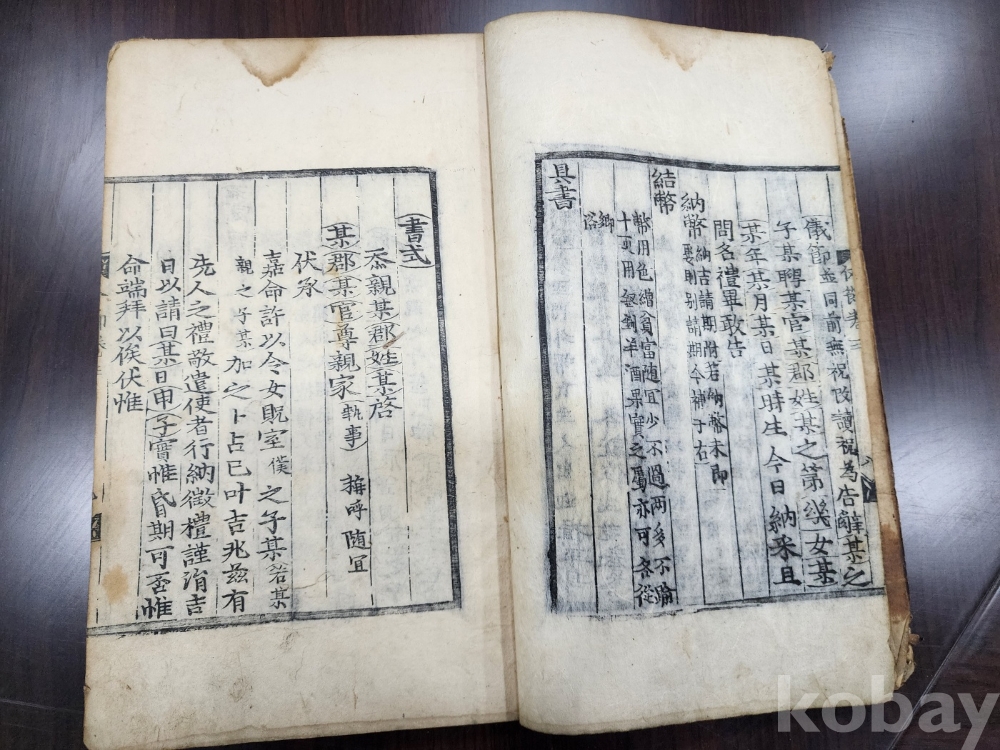 儀節 並同前無祝改讀祝為告辭某之
子某聘某官某郡姓某之第幾女某
某年某月某日某時生今日納采且
問名禮畢敢告
納幣 納吉請期附若納幣未即
要期別請期今補于右
結幣
幣用色繒貧富隨宜少不過兩多不踰
十更用釵釧羊酒果實之屬亦可各從
鄉俗
具書
書式
忝親某郡姓某啓
某郡某官尊親家 執事 稱呼隨宜
伏承
嘉命許以令女貺室 僕 之子某 若某
親之子某 加之卜占已叶吉兆茲有
先人之禮敬遣使者行納徵禮謹涓吉
日以請曰某日甲子實惟昏期可否惟
命端拜以俟伏惟
kobay